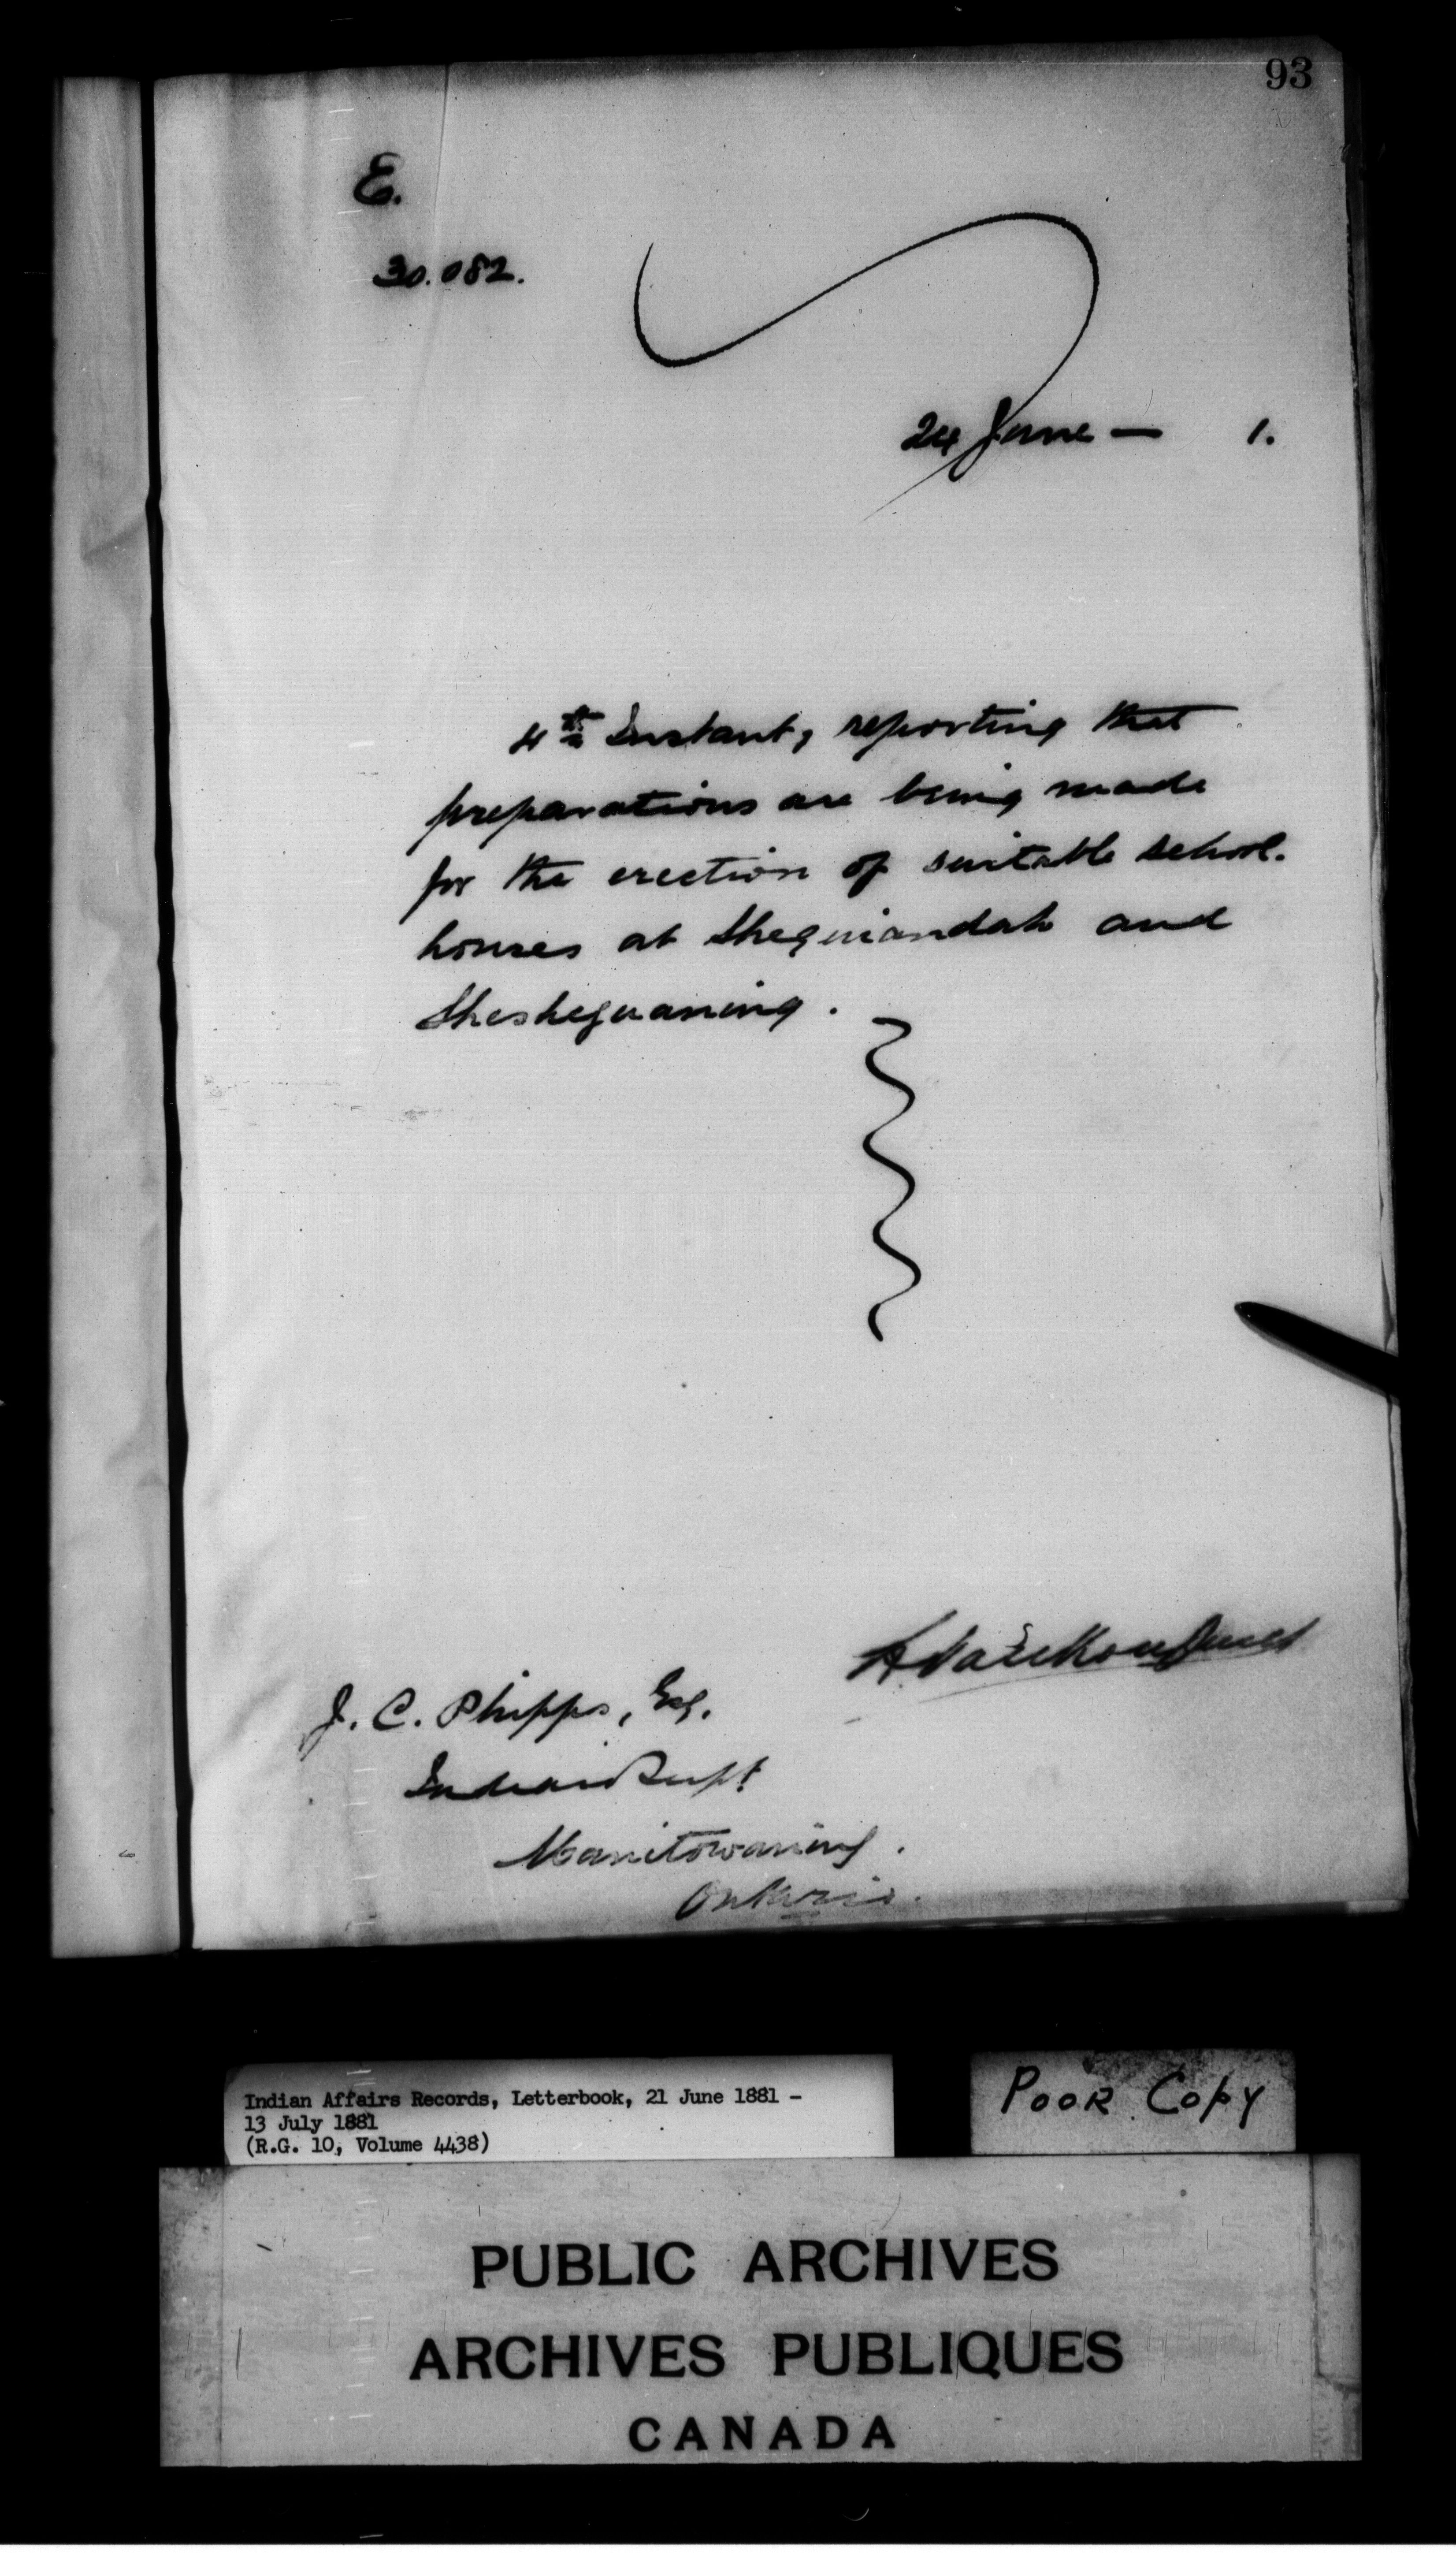 93
E.
30.082.
24 June — 1.
4th Instant, reporting that
preparations are being made
for the erection of suitable school.
houses at Sheguiandah and
Sheshegwaning.
J. C. Phipps, Esq.
Indian Supt
Manitowaning.
Ontario.
Indian Affairs Records, Letterbook, 21 June 1881 -
13 July 1881
(R.G. 10, Volume 4438)
POOR Copy
PUBLIC ARCHIVES
ARCHIVES PUBLIQUES
CANADA